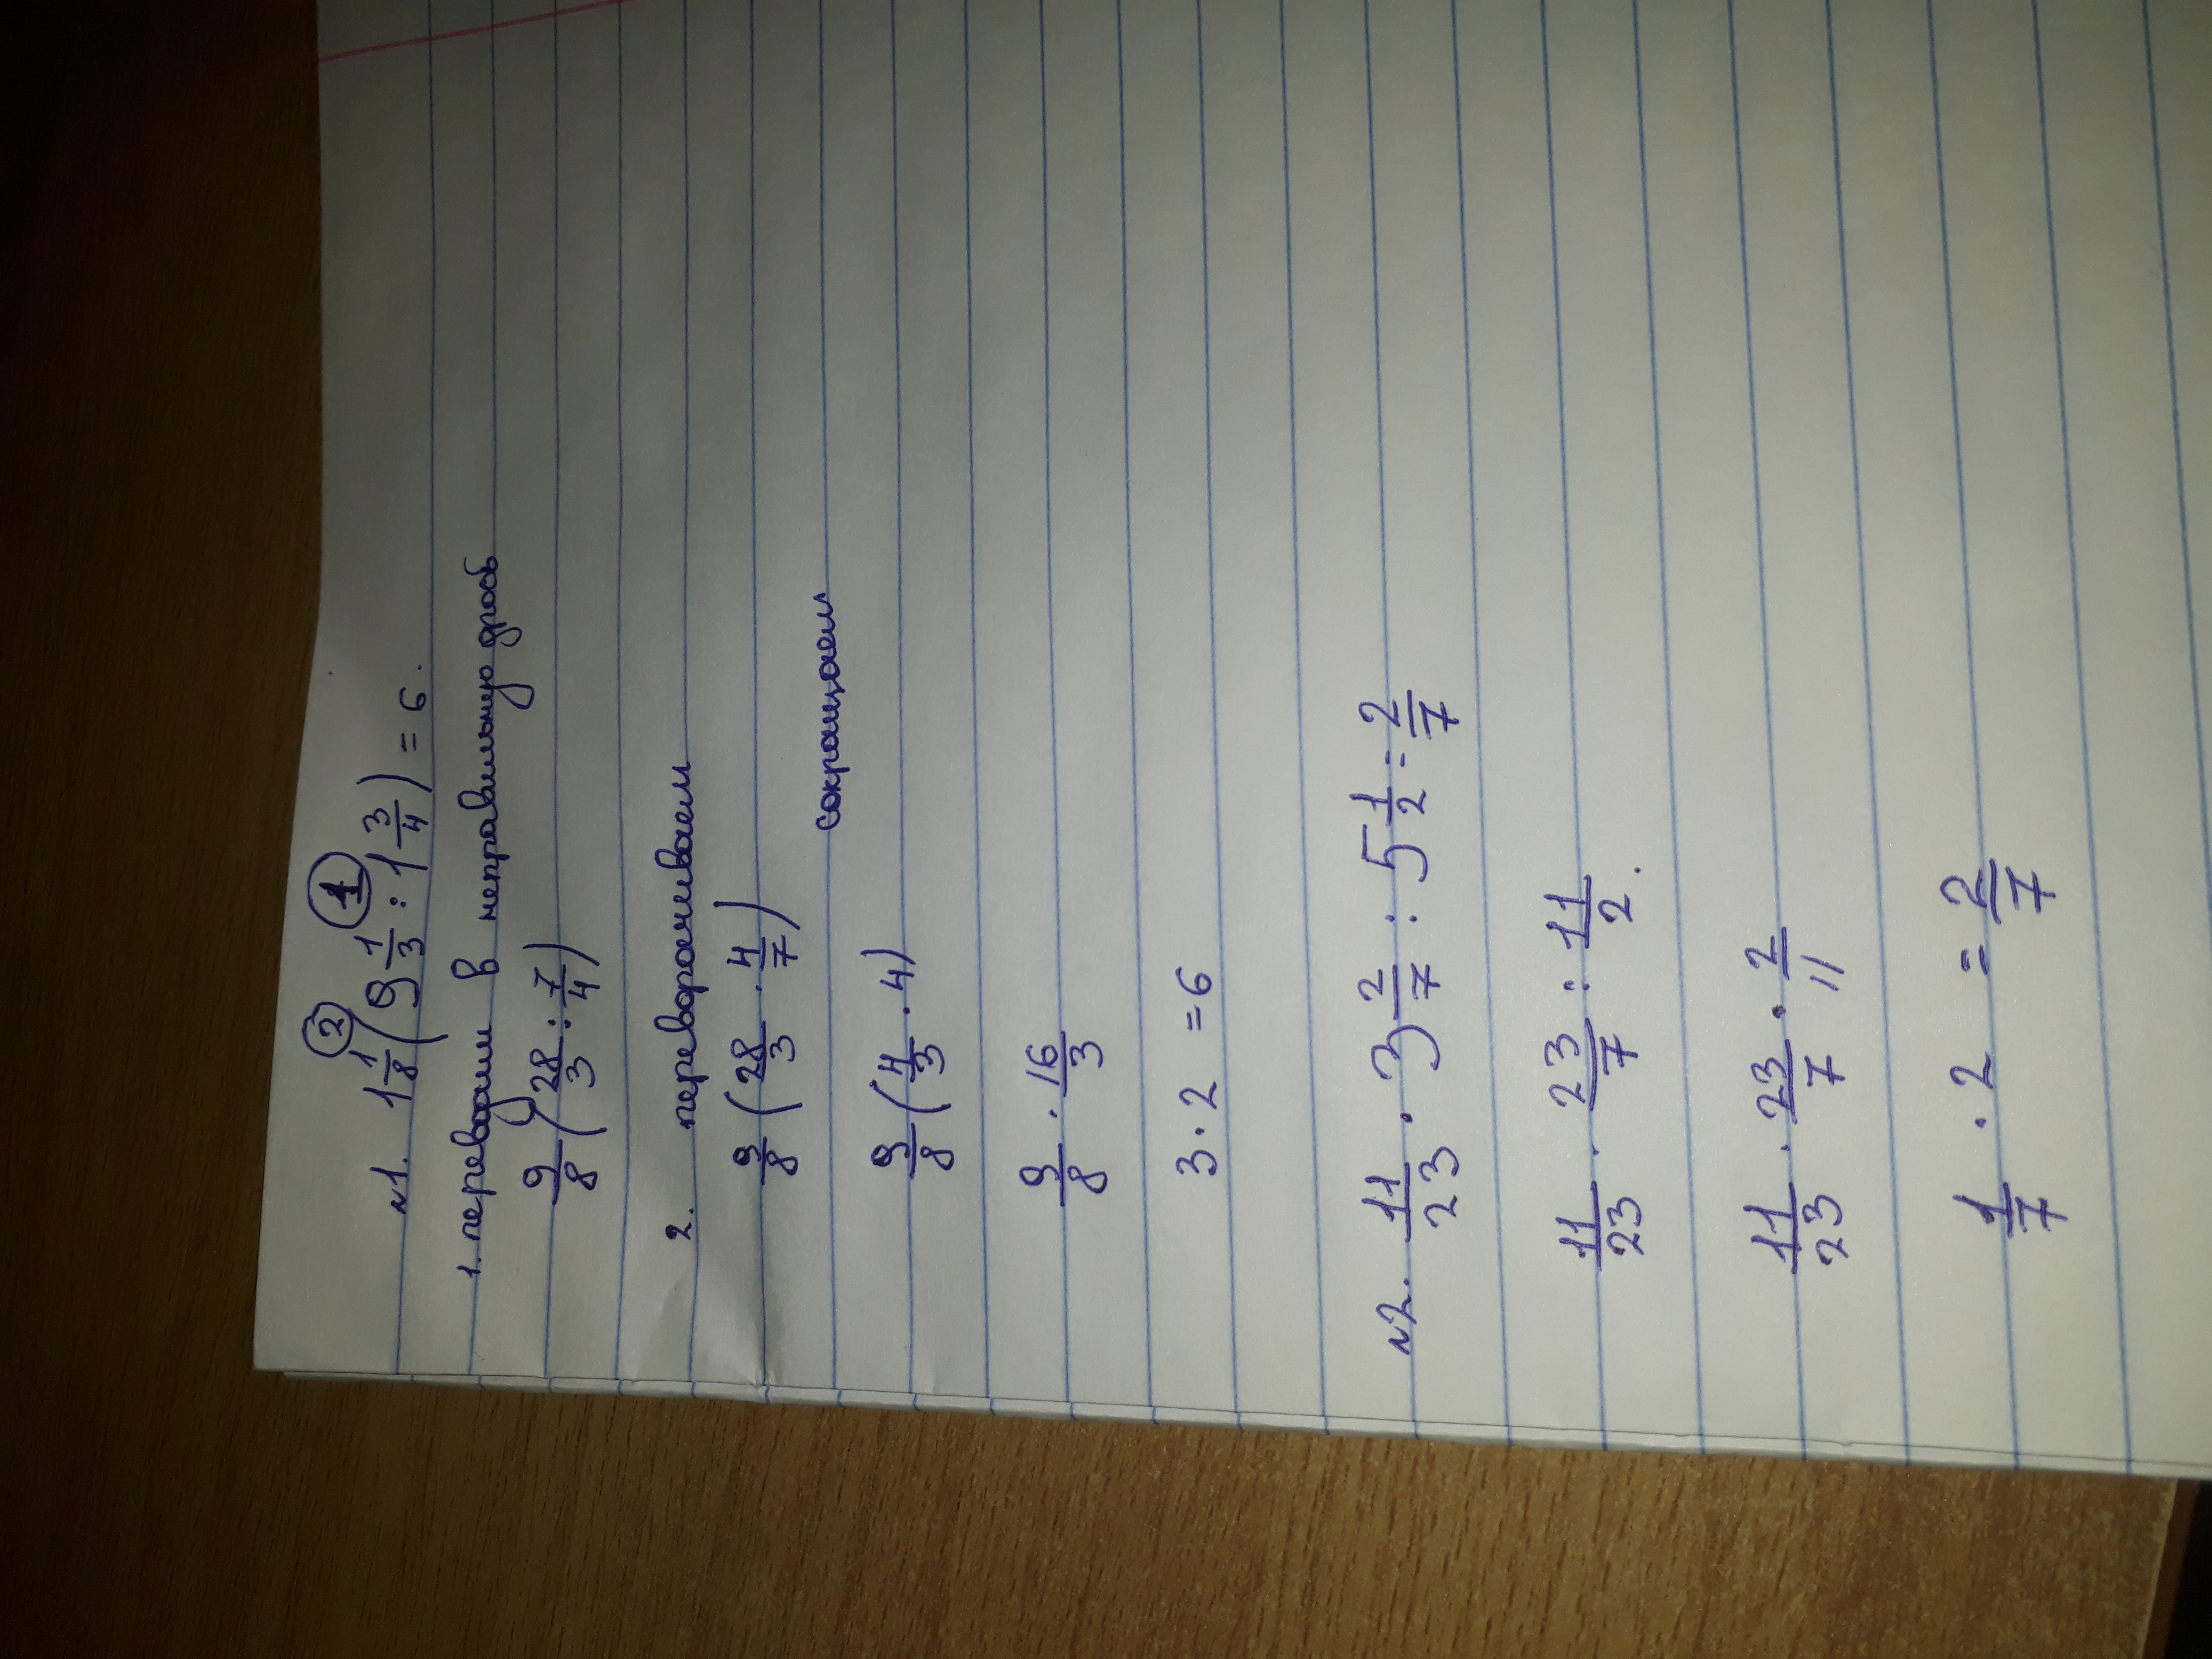 ② ①
№1. 1 1/8 (9 1/3 : 1 3/4) = 6.
1. переводим в неправильную дробь
9/8 (28/3 : 7/4)
2. переворачиваем
9/8 (28/3 · 4/7)
сокращаем
9/8 (4/3 · 4)
9/8 · 16/3
3 · 2 = 6
№2. 11/23 · 3 2/7 : 5 1/2 = 2/7
11/23 · 23/7 : 11/2.
11/23 · 23/7 · 2/11
1/7 · 2 = 2/7